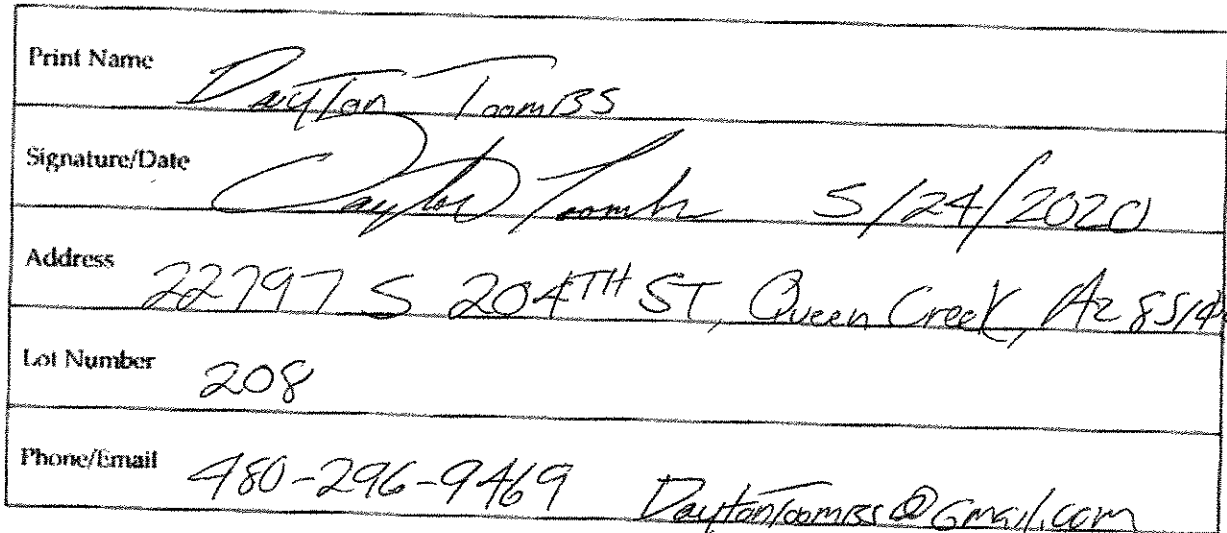 Print Name Dayton Toombs
Signature/Date Dayton Toombs 5/24/2020
Address 22797 S 204TH ST, Queen Creek, Az 85142
Lot Number 208
Phone/Email 480-296-9469 DaytonToombs@Gmail.com